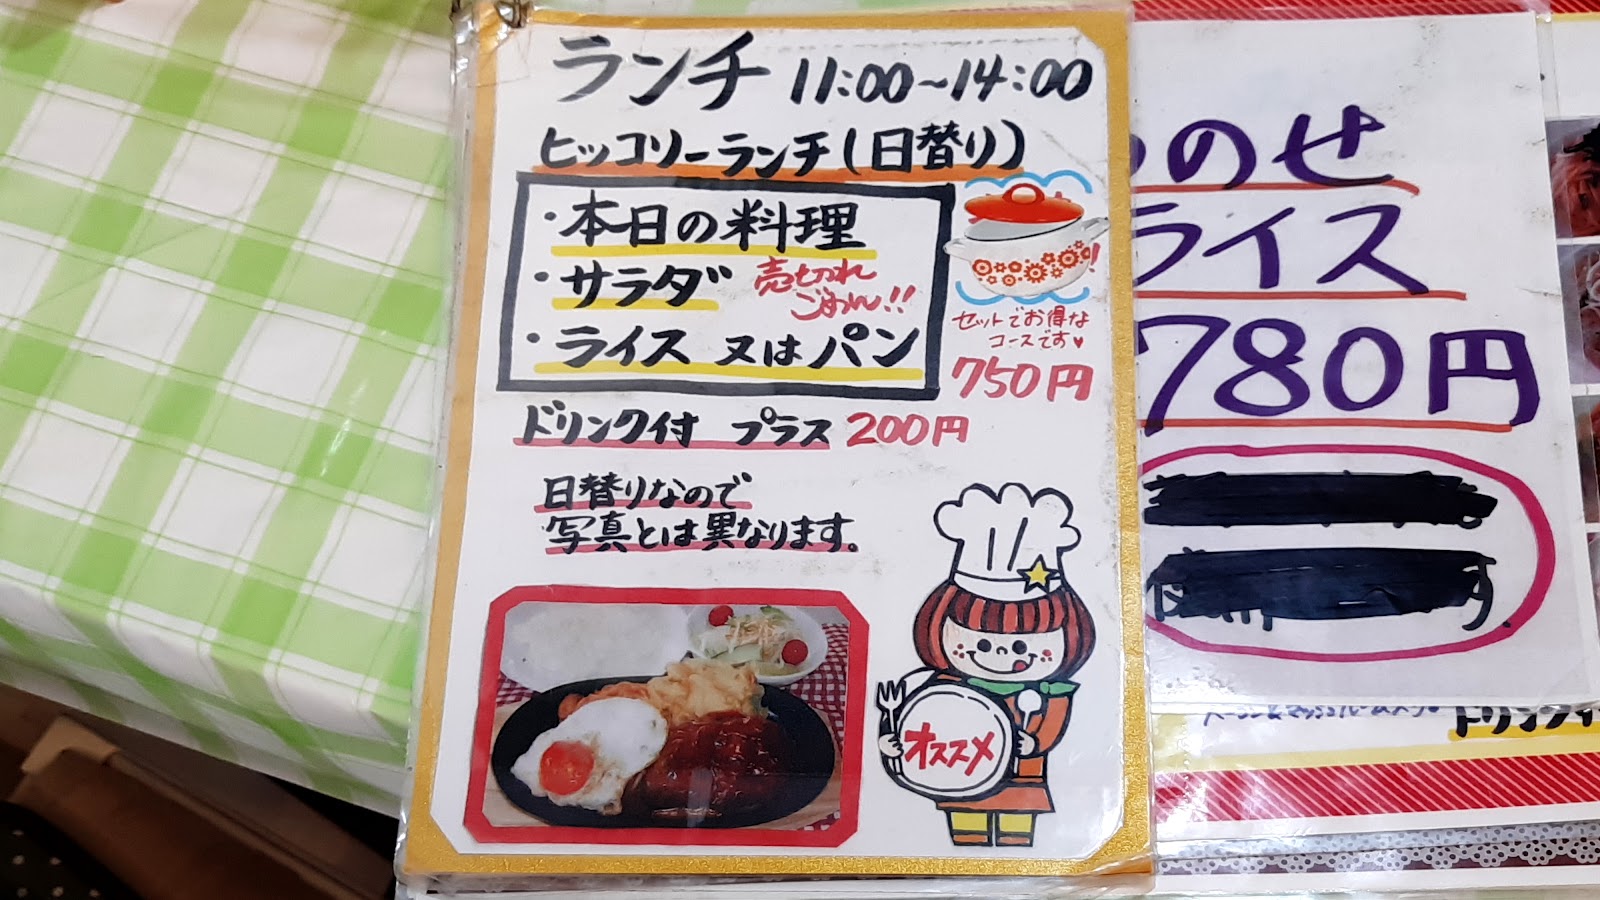 ランチ 11:00~14:00
ヒッコリーランチ(日替り)
・本日の料理
・サラダ 売切れ
ごめん!!
・ライス 又は パン
セットでお得な
コースです♥
750円
ドリンク付 プラス 200円
日替りなので
写真とは異なります。
オススメ
のせ
ライス
780円
ドリンク付